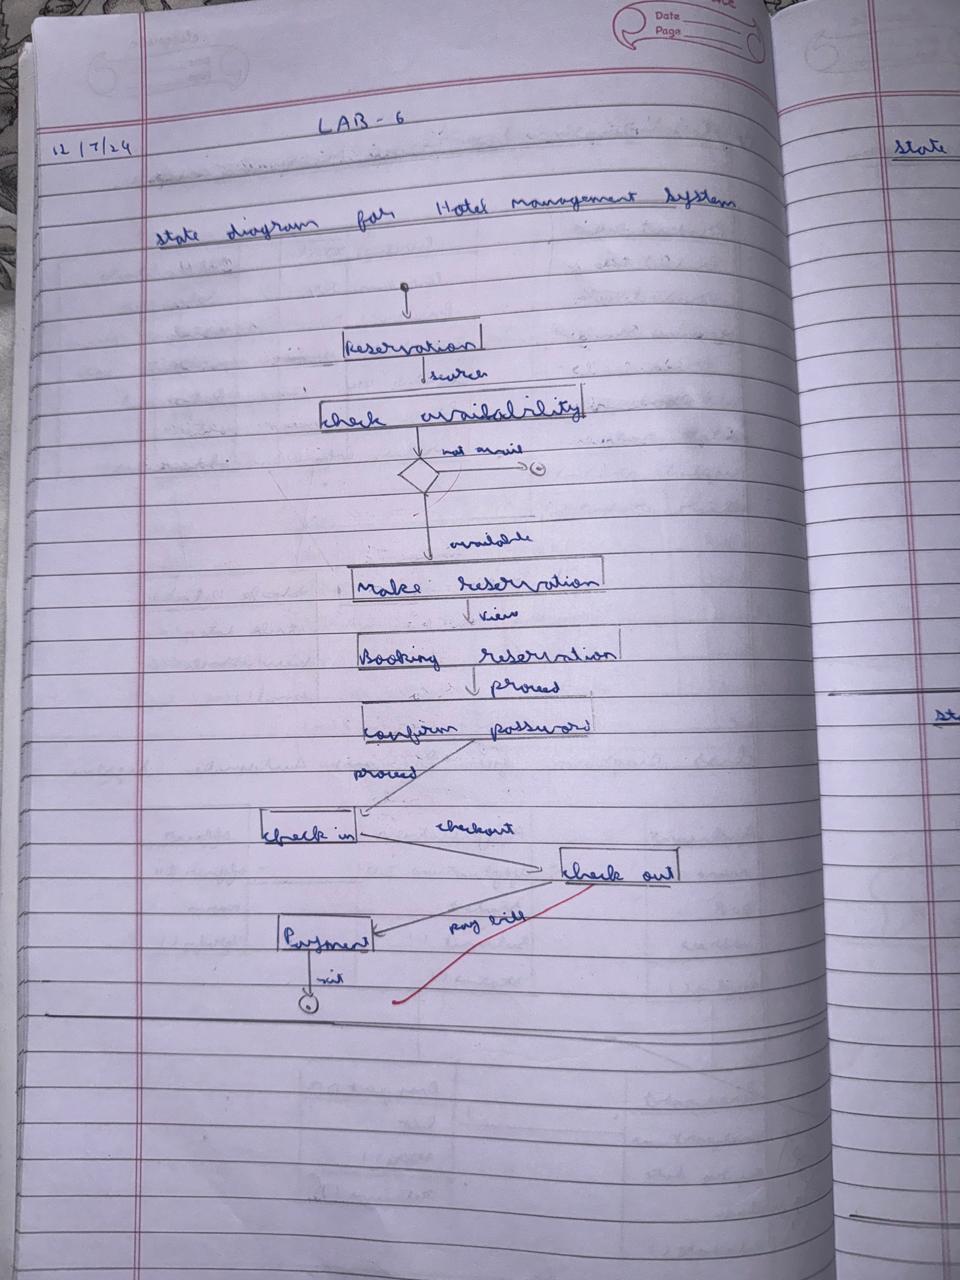 Date
Page
LAB - 6
12/7/24
state diagram for Hotel Management System
Reservation
search
check availability
not avail
available
Make reservation
view
Booking reservation
proceed
confirm password
proceed
check in
checkout
check out
pay bill
Payment
exit
state